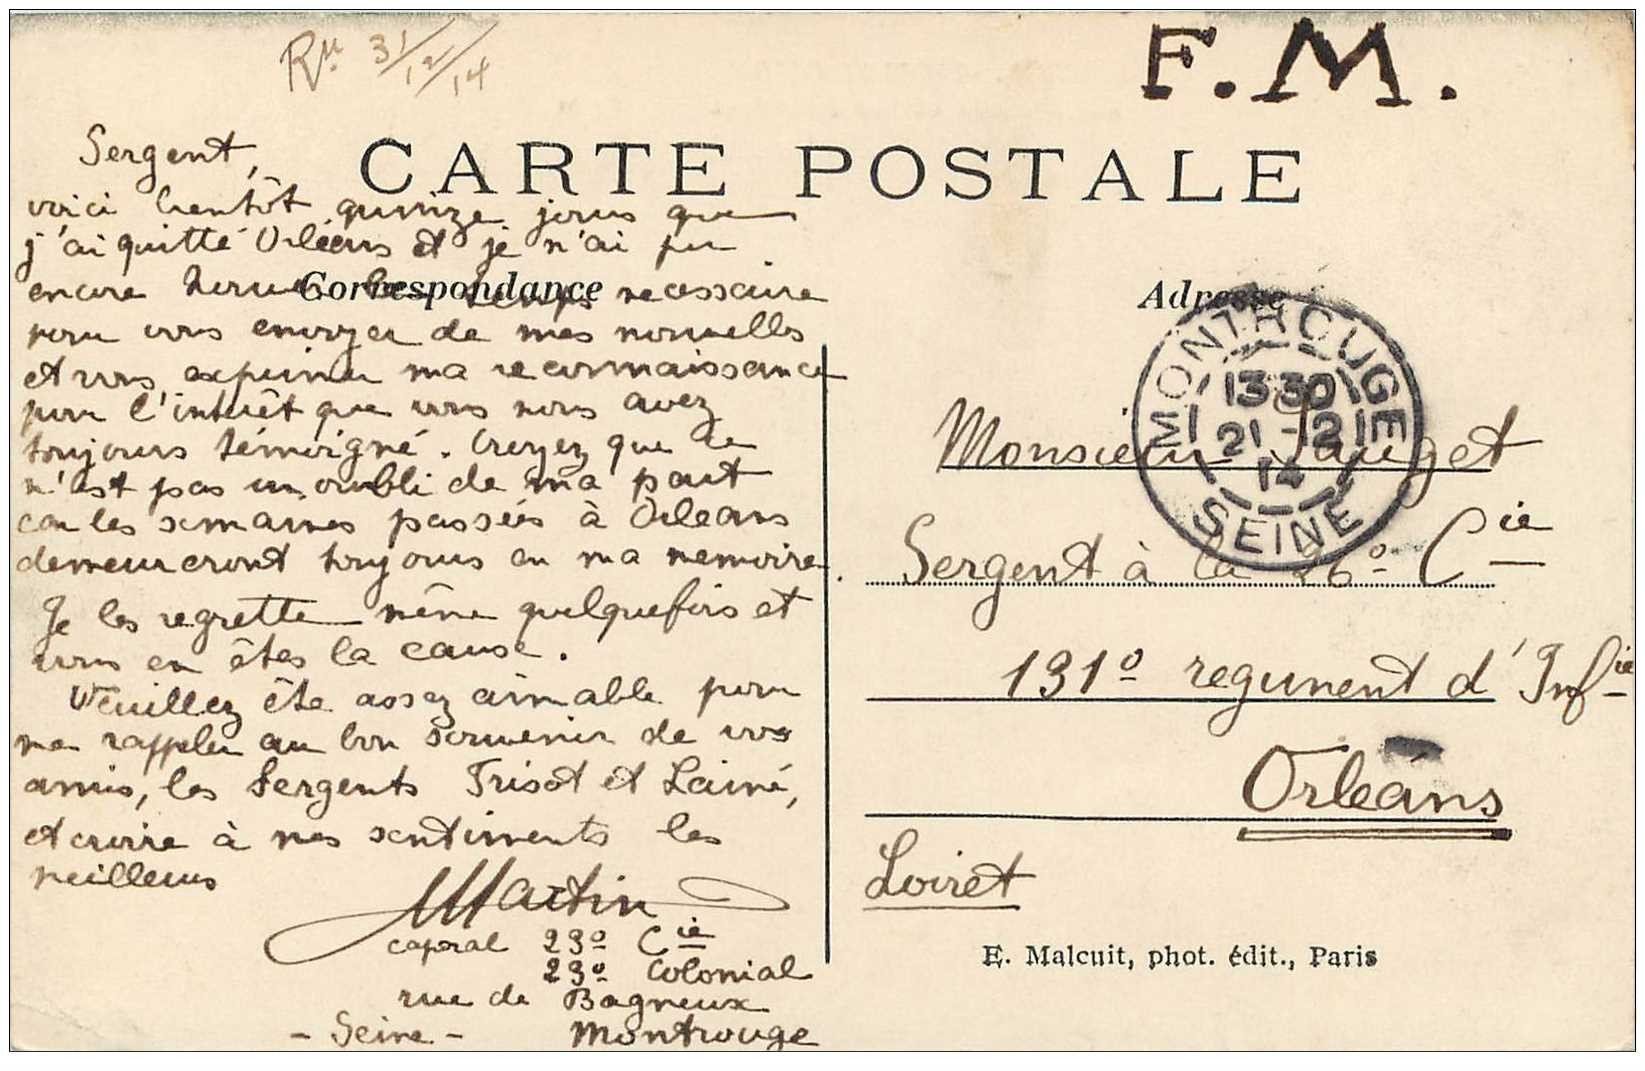 Rép. 31/12/14
F.M.
CARTE POSTALE
Sergent,
voici bientôt quinze jours que
j'ai quitté Orléans et je n'ai pu
encore trouver le temps necessaire
pour vous envoyer de mes nouvelles
et vous exprimer ma reconnaissance
pour l'intérêt que vous nous avez
toujours témoigné. Croyez que ce
n'est pas un oubli de ma part
car les semaines passées à Orleans
demeureront toujours en ma memoire.
Je les regrette même quelquefois et
vous en êtes la cause.
Veuillez être assez aimable pour
me rappeler au bon souvenir de vos
amis, les Sergents Trisot et Lainé,
et croire à mes sentiments les
meilleurs
Martin
caporal 23º Cie
23º Colonial
rue de Bagneux
- Seine - Montrouge
Correspondance
Adresse
MONTROUGE
13 30
21 -12
14
SEINE
Monsieur Sauget
Sergent à la 26º Cie
131º regiment d'Infie
Orléans
Loiret
E. Malcuit, phot. édit., Paris